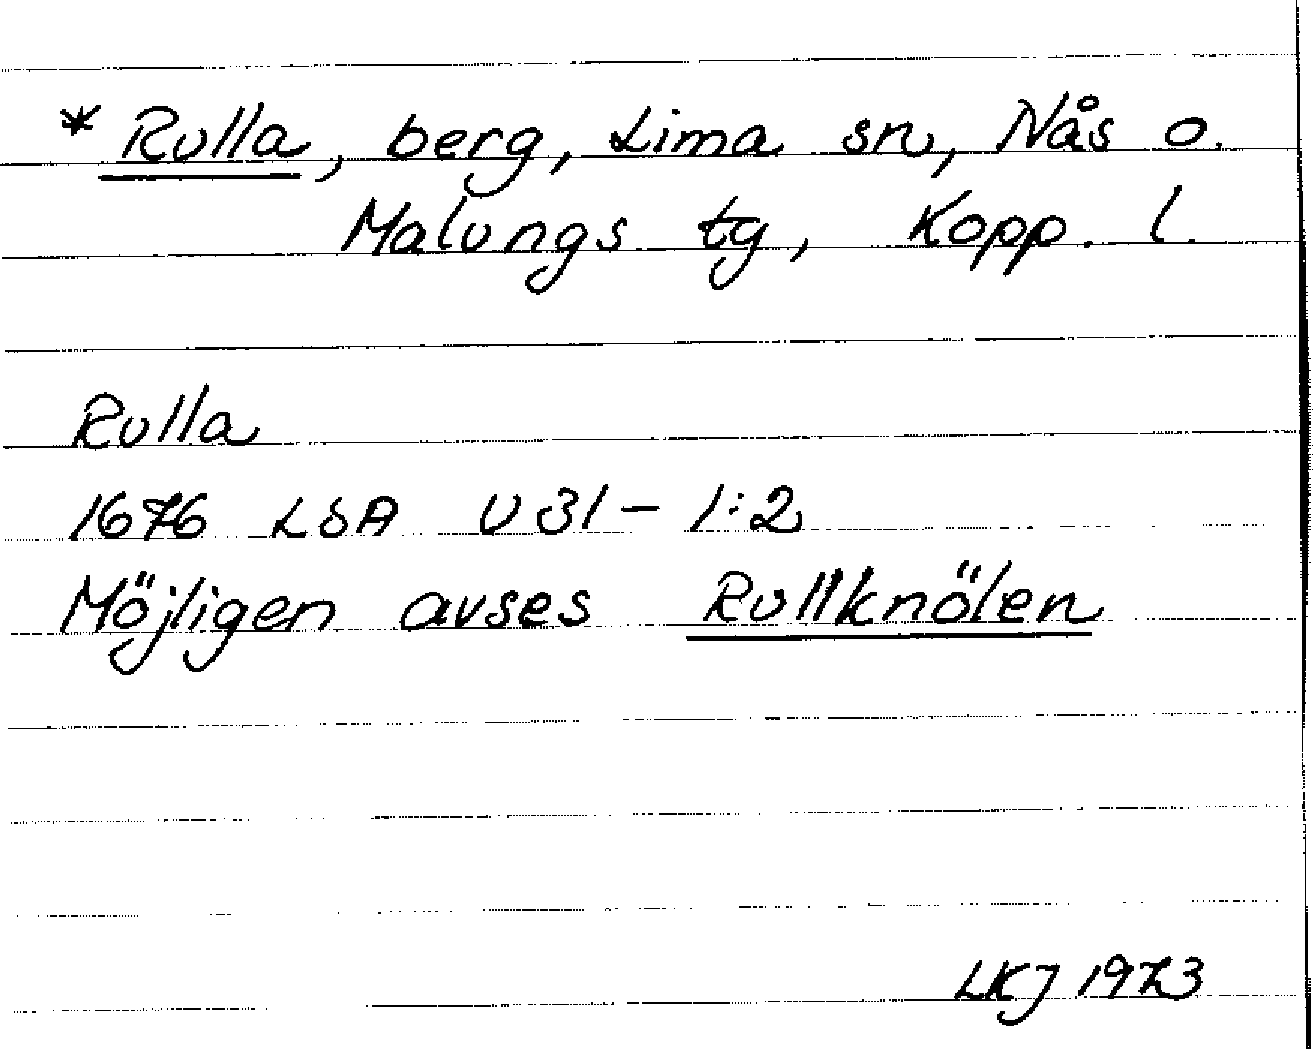 * Rulla, berg, Lima sn, Nås o.
Malungs tg, Kopp. l.
Rulla
1676 LSA U 31 - 1:2
Möjligen avses Rullknölen
LKJ 1973